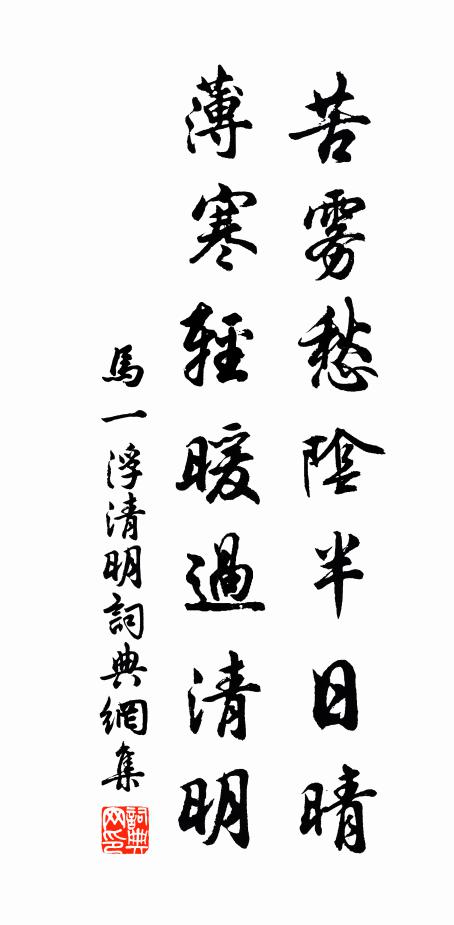 苦雾愁陰半日晴
薄寒輕暖過清明
馬一浮清明詞典網集
詞典网印